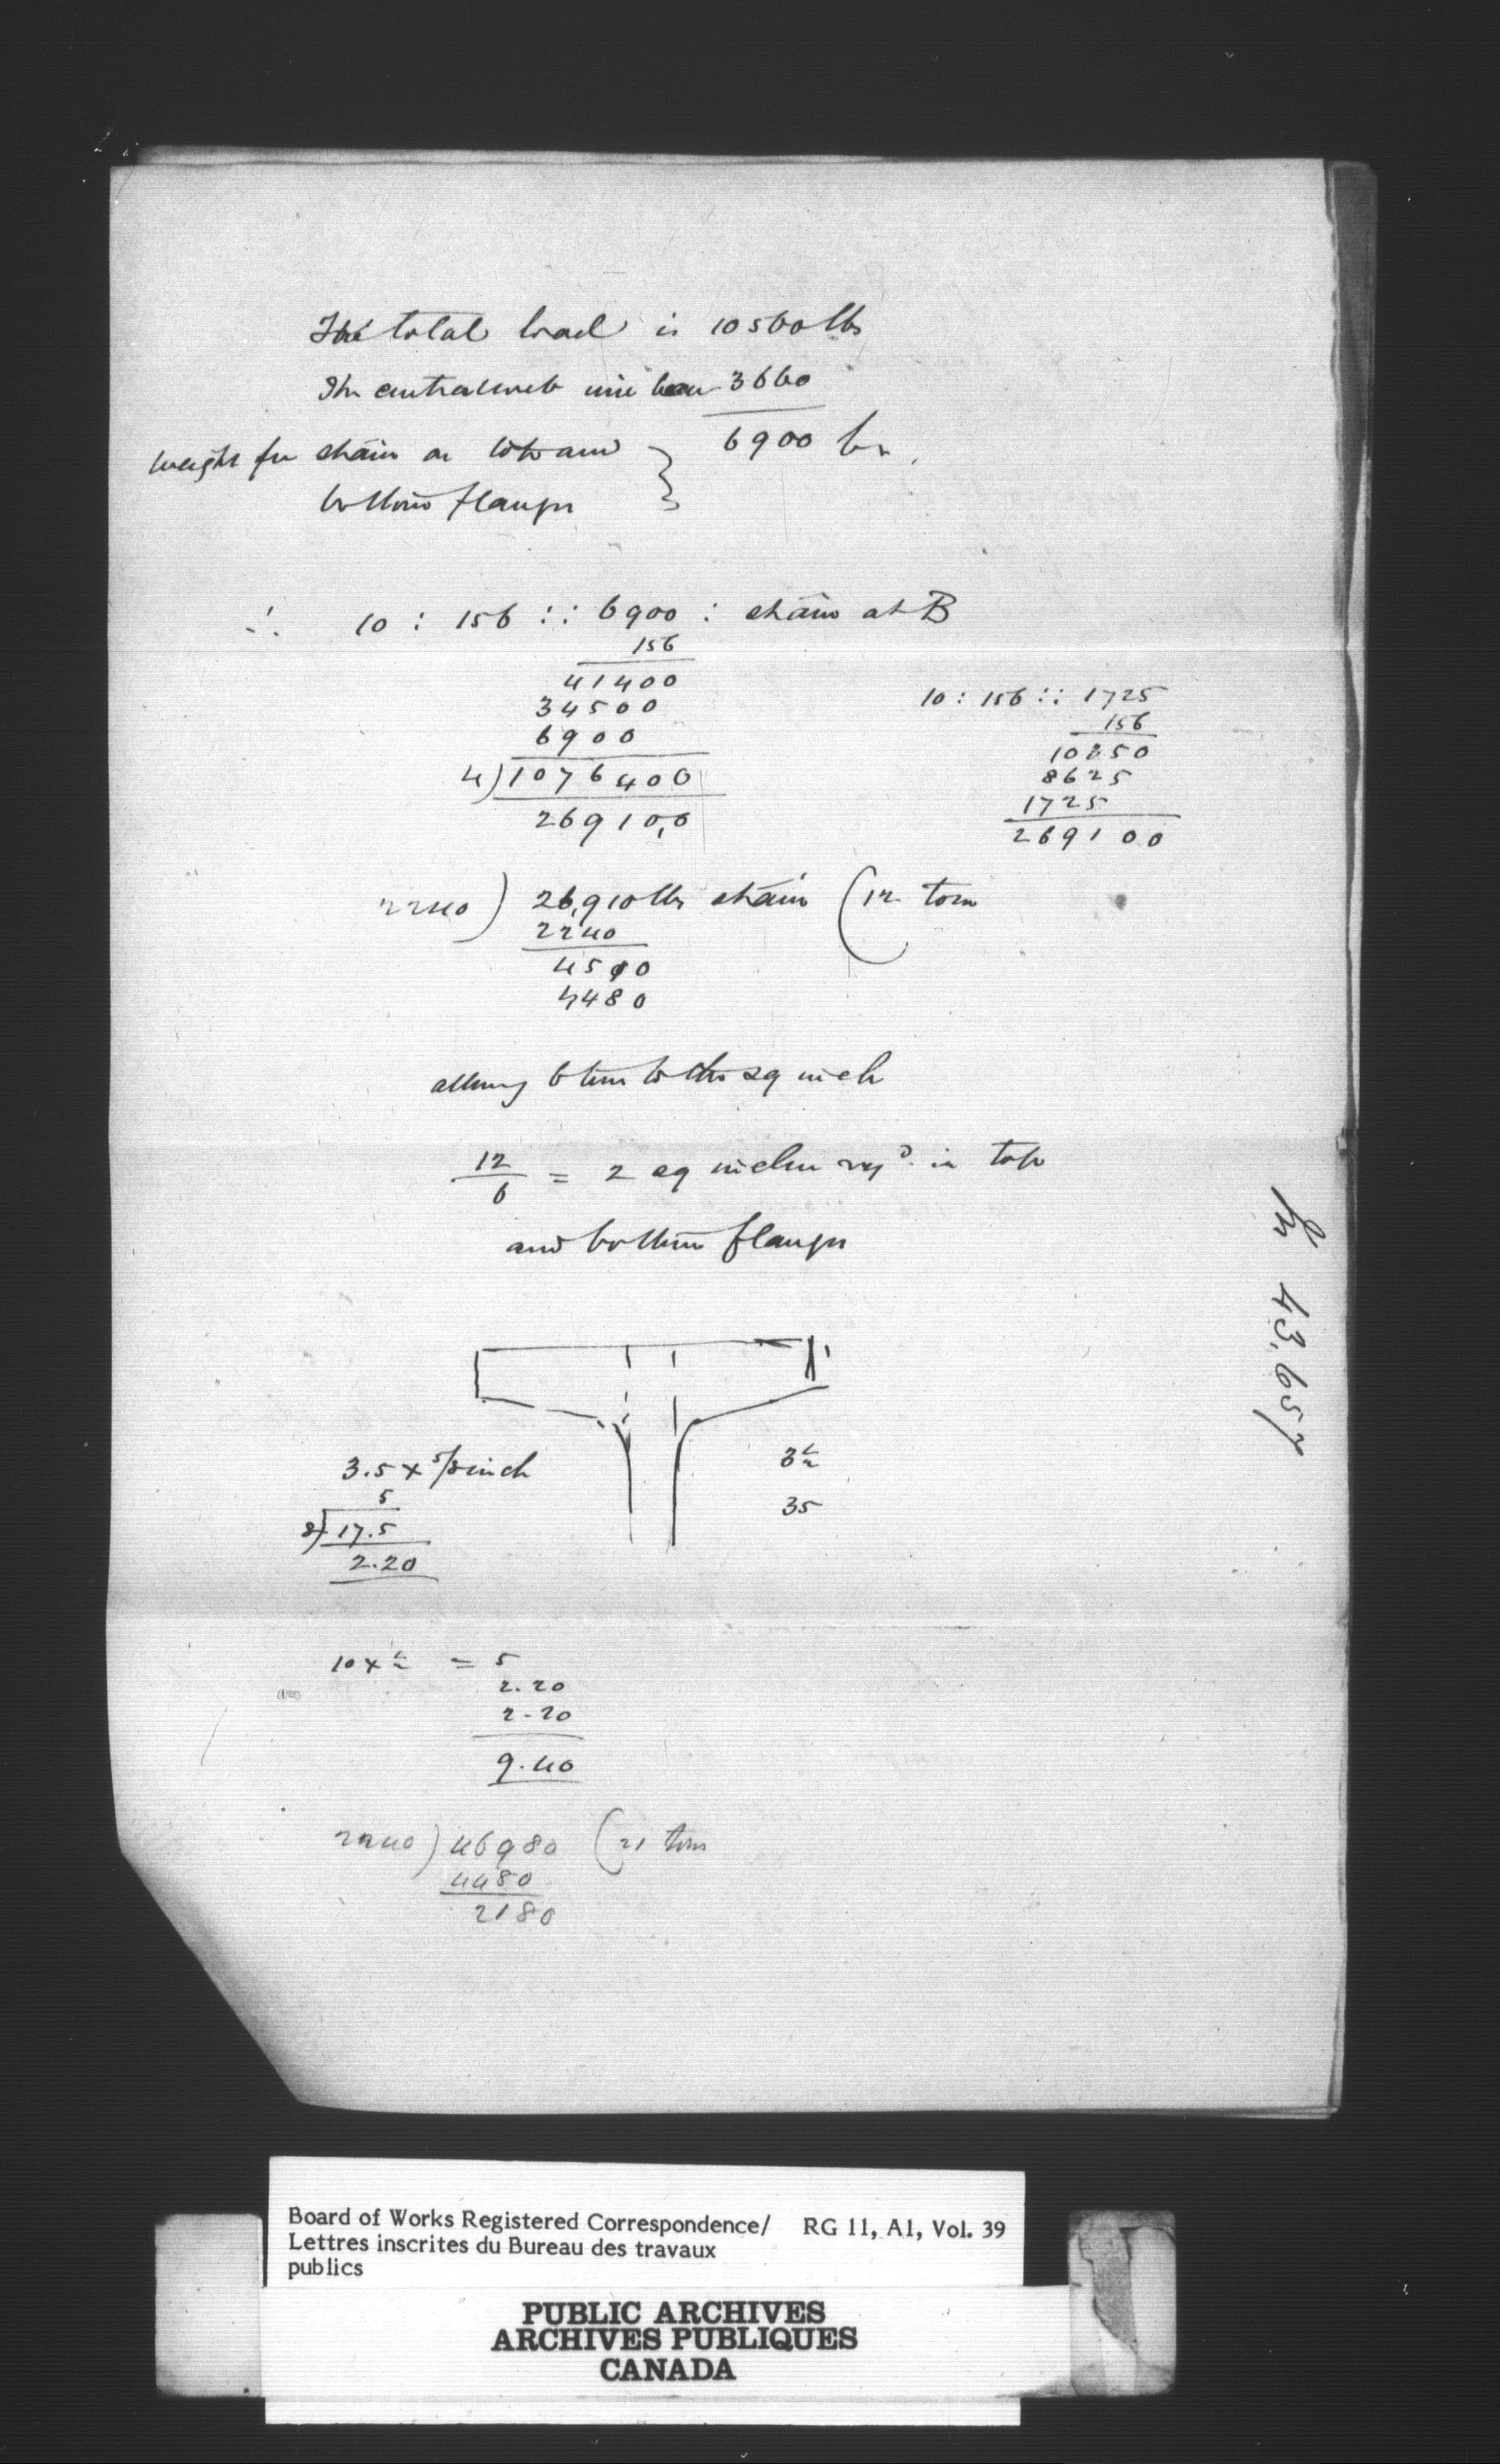 The total load is 10560 lbs
The central web will bear 3660
6900 lbs.
weight for strain on top and
bottom flanges
∴ 10 : 156 :: 6900 : strain at B
156
41400
34500
6900
4) 1076400
26910,0
10 : 156 :: 1725
156
10350
8625
1725
269100
2240) 26,910 lbs strain (12 tons
2240
4510
4480
allowing 6 tons to the sq inch
12/6 = 2 sq inches reqd. in top
and bottom flanges
3.5 x 5/8 inch
5
8) 17.5
2.20
3½
35
10 x ½ = 5
2.20
2.20
9.40
2240) 46980 (21 tons
4480
2180
43,657
Board of Works Registered Correspondence/ RG 11, A1, Vol. 39
Lettres inscrites du Bureau des travaux
publics
PUBLIC ARCHIVES
ARCHIVES PUBLIQUES
CANADA